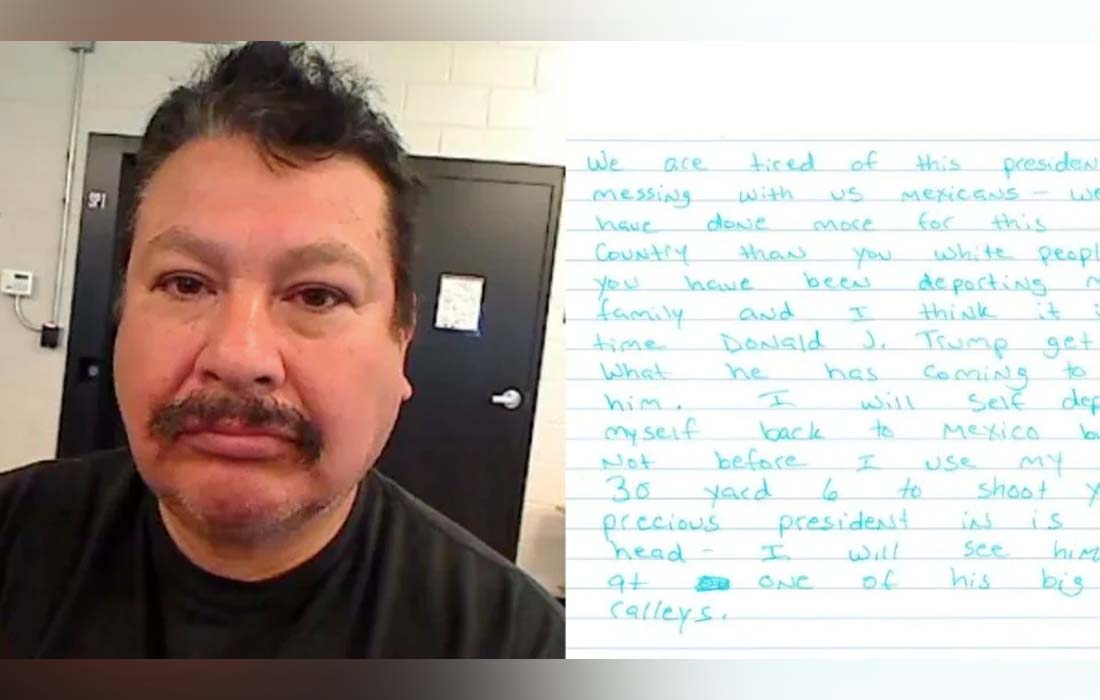 SP1
We are tired of this presiden
messing with us mexicans - we
have done more for this
Country than you white peopl
you have been deporting m
family and I think it i
time Donald J. Trump get
What he has coming to
him. I will self dep
myself back to Mexico b
Not before I use my
30 yard 6 to shoot y
precious president in is
head - I will see him
at one of his big
ralleys.